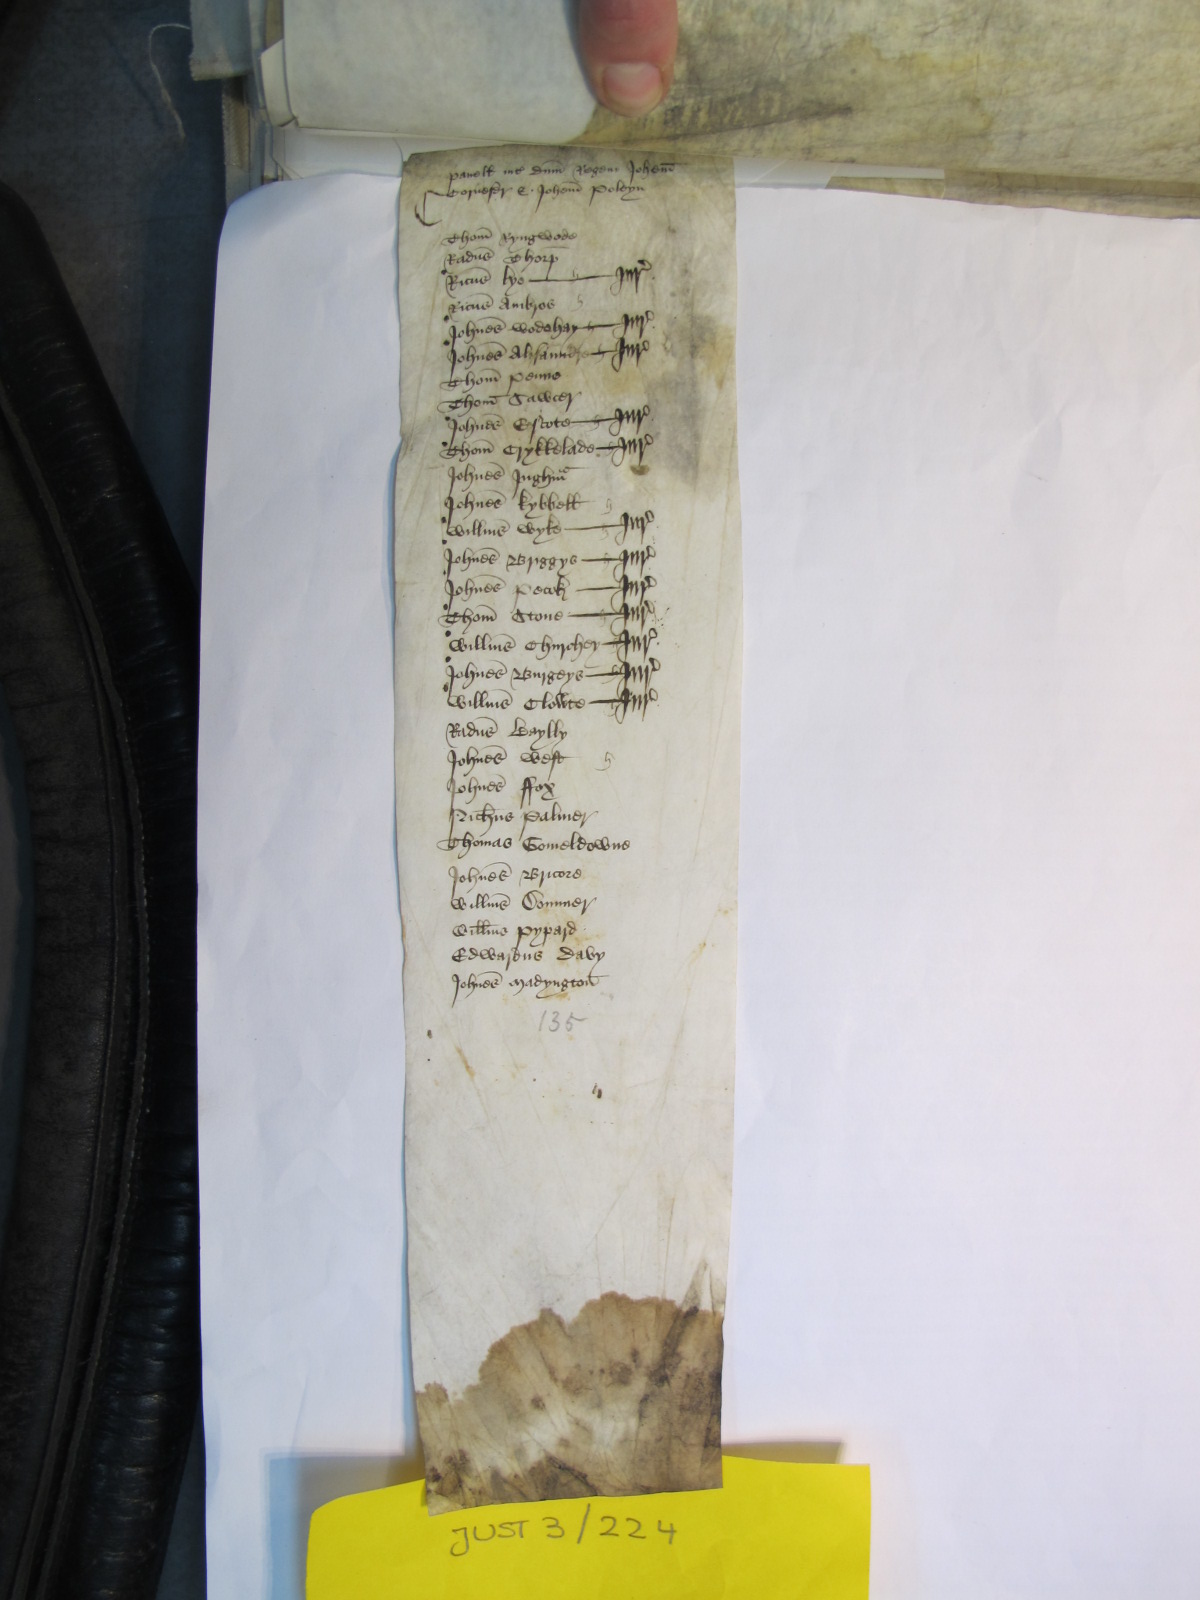 panell int dnm Regem Johem
Torneser & Johem Poleyn
Thom Ryngwode
Radus Thorp
Ricus lye Jur
Ricus Ambros
Johnes Wodehay Jur
Johnes Alisaundr Jur
Thom Penne
Thom Sawcer
Johnes Escote Jur
Thom Crykkelade Jur
Johnes Inghm
Johnes Kybbell
Willms Wyke Jur
Johnes Briggys Jur
Johnes Pecok Jur
Thom Stone Jur
Willms Chircher Jur
Johnes Burgeys Jur
Willms Clowte Jur
Radus Baylly
Johnes West
Johnes ffox
Richus Palmer
Thomas Gomeldowne
Johnes Bricore
Willms Commer
Willms Pypard
Edwardus Davy
Johnes Madyngton
135
JUST 3/224